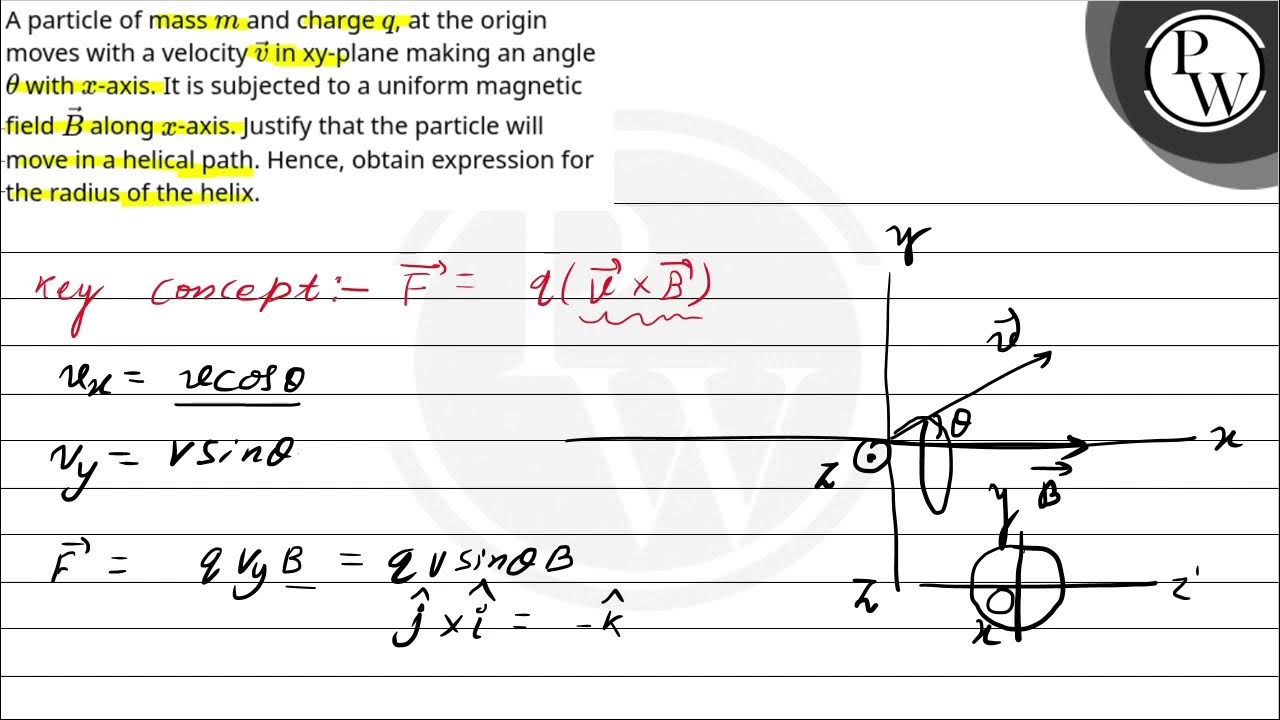 A particle of mass m and charge q, at the origin
moves with a velocity v⃗ in xy-plane making an angle
θ with x-axis. It is subjected to a uniform magnetic
field B⃗ along x-axis. Justify that the particle will
move in a helical path. Hence, obtain expression for
the radius of the helix.
P
W
Key concept:- F⃗ = q(v⃗ × B⃗)
vx = v cosθ
vy = v sinθ
F⃗ = q vy B = q v sinθ B
ĵ × î = -k̂
y
v⃗
θ
x
z
B⃗
y
z
z'
x